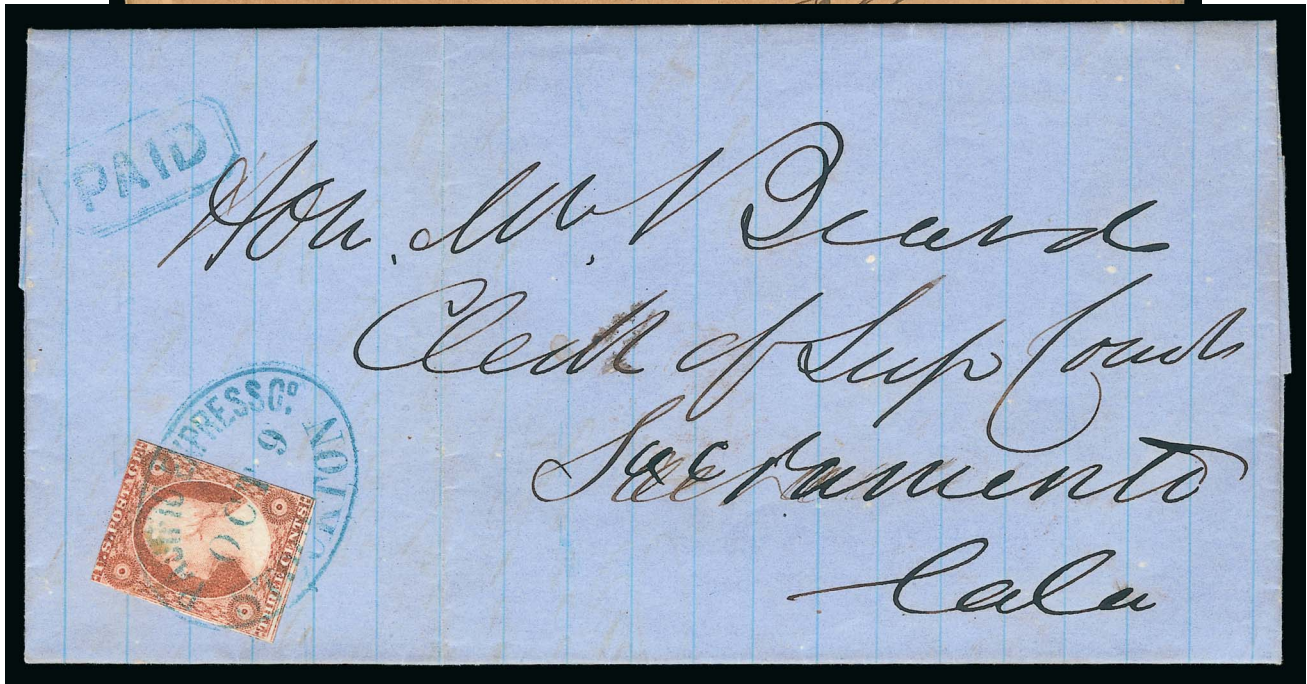 PAID
Hon. Wm. V Beard
Clerk of Sup Court
Sacramento
Cala
PACIFIC EXPRESS CO. UNION
OCT 9
U.S. POSTAGE
THREE CENTS